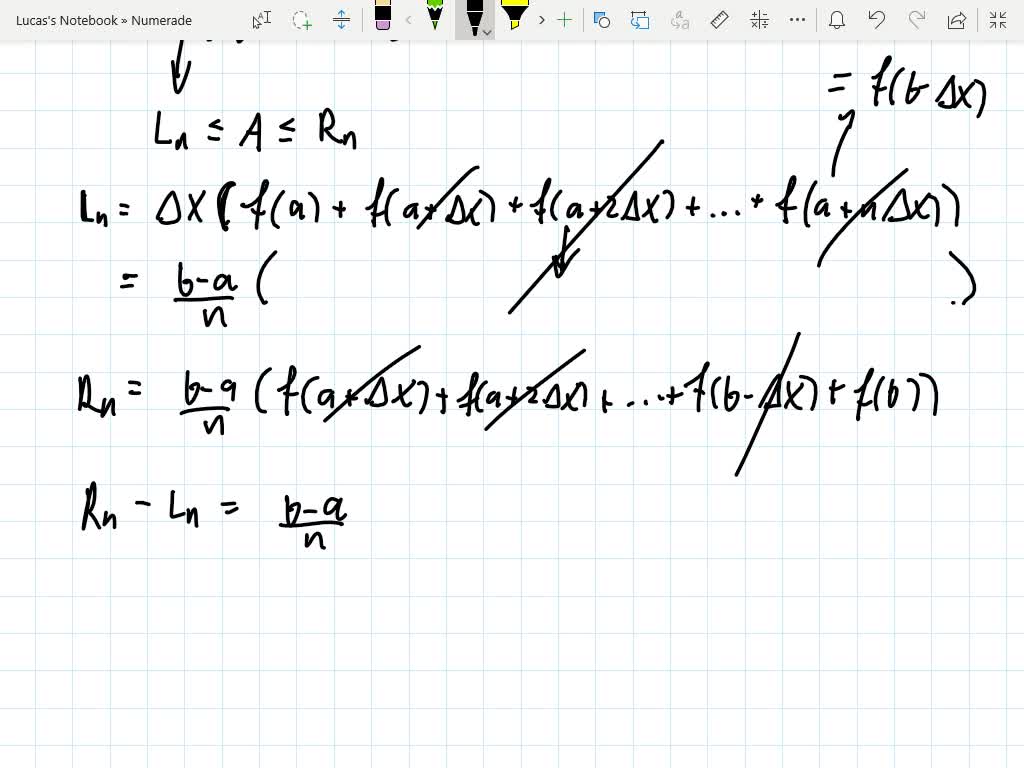 Lucas's Notebook » Numerade
= f(b-Δx)
Ln ≤ A ≤ Rn
Ln = Δx (f(a) + f(a+Δx) + f(a+2Δx) + ... + f(a+nΔx))
= b-a/n ( )
Rn = b-a/n (f(a+Δx) + f(a+2Δx) + ... + f(b-Δx) + f(b))
Rn - Ln = b-a/n